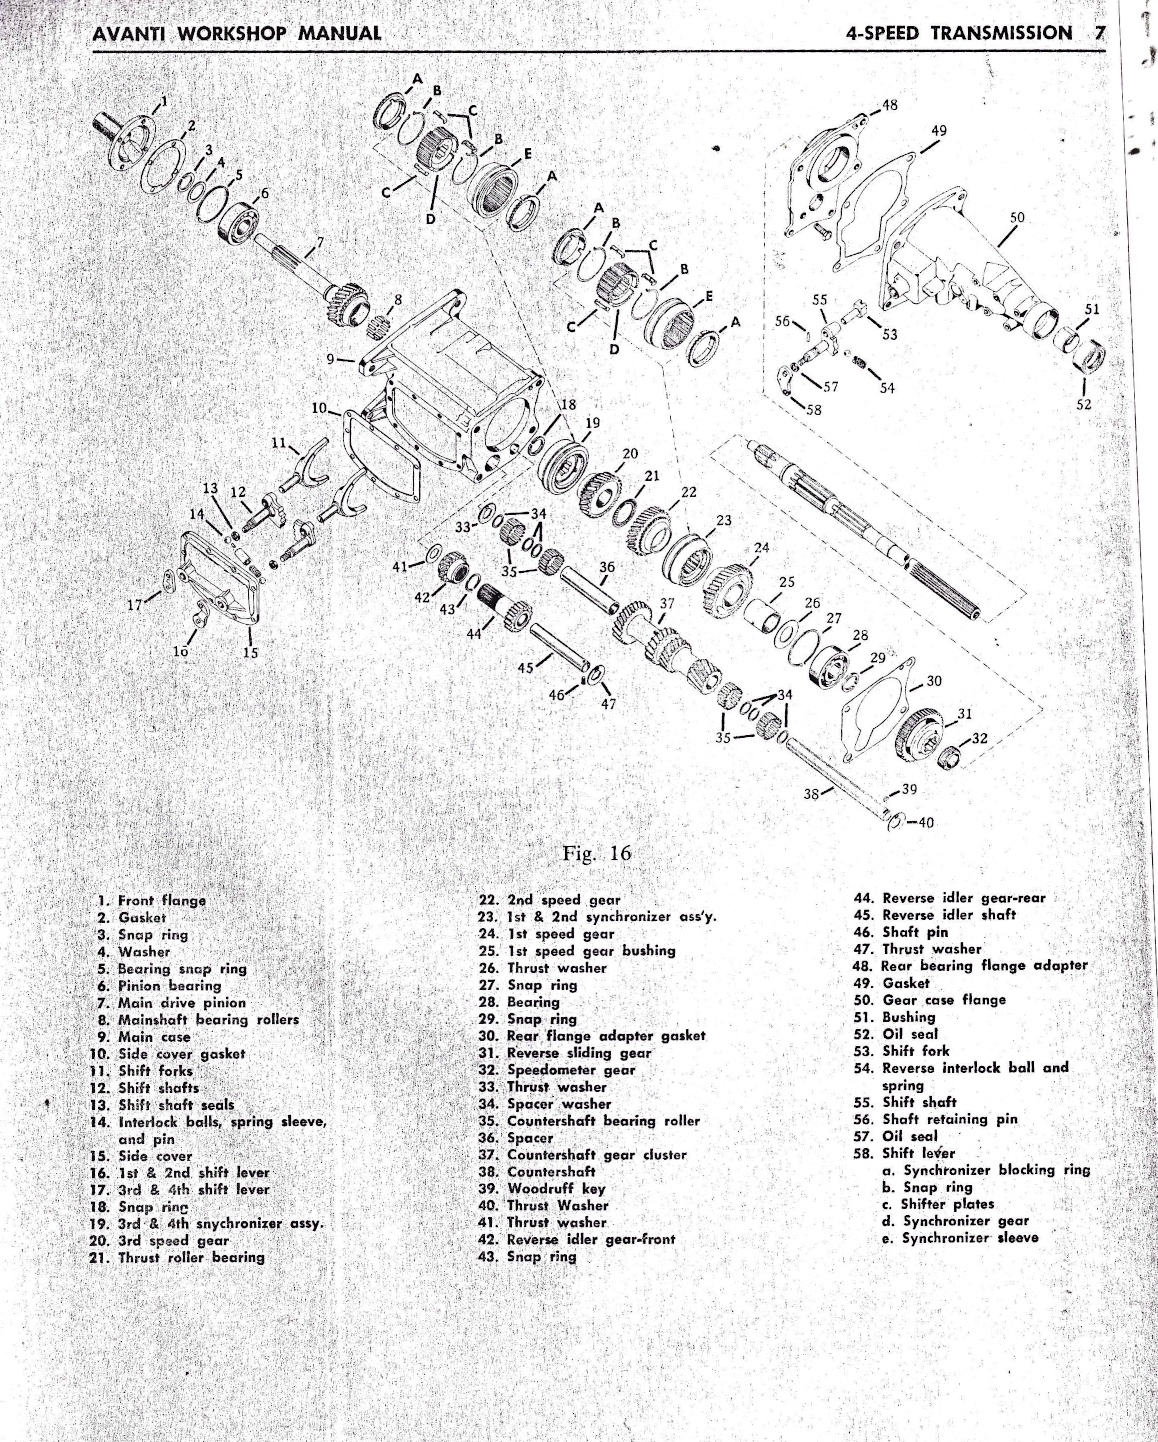 AVANTI WORKSHOP MANUAL
4-SPEED TRANSMISSION 7
1
2
3
4
5
6
7
8
9
10
11
12
13
14
15
16
17
18
19
20
21
22
23
24
25
26
27
28
29
30
31
32
33
34
35
36
37
34
35
38
39
40
41
42
43
44
45
46
47
48
49
50
51
52
53
54
55
56
57
58
A
B
C
B
E
A
C
D
A
B
C
B
E
A
C
D
Fig. 16
1. Front flange
2. Gasket
3. Snap ring
4. Washer
5. Bearing snap ring
6. Pinion bearing
7. Main drive pinion
8. Mainshaft bearing rollers
9. Main case
10. Side cover gasket
11. Shift forks
12. Shift shafts
13. Shift shaft seals
14. Interlock balls, spring sleeve,
and pin
15. Side cover
16. 1st & 2nd shift lever
17. 3rd & 4th shift lever
18. Snap ring
19. 3rd & 4th snychronizer assy.
20. 3rd speed gear
21. Thrust roller bearing
22. 2nd speed gear
23. 1st & 2nd synchronizer ass'y.
24. 1st speed gear
25. 1st speed gear bushing
26. Thrust washer
27. Snap ring
28. Bearing
29. Snap ring
30. Rear flange adapter gasket
31. Reverse sliding gear
32. Speedometer gear
33. Thrust washer
34. Spacer washer
35. Countershaft bearing roller
36. Spacer
37. Countershaft gear cluster
38. Countershaft
39. Woodruff key
40. Thrust Washer
41. Thrust washer
42. Reverse idler gear-front
43. Snap ring
44. Reverse idler gear-rear
45. Reverse idler shaft
46. Shaft pin
47. Thrust washer
48. Rear bearing flange adapter
49. Gasket
50. Gear case flange
51. Bushing
52. Oil seal
53. Shift fork
54. Reverse interlock ball and
spring
55. Shift shaft
56. Shaft retaining pin
57. Oil seal
58. Shift lever
a. Synchronizer blocking ring
b. Snap ring
c. Shifter plates
d. Synchronizer gear
e. Synchronizer sleeve